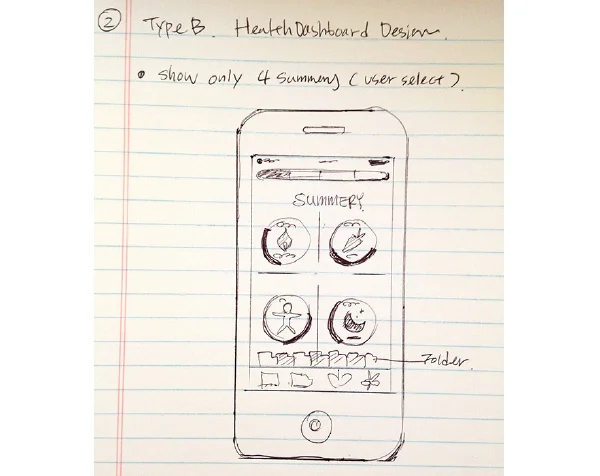 ② Type B. Health Dashboard Design.
• show only 4 summery (user select).
SUMMERY
Folder.